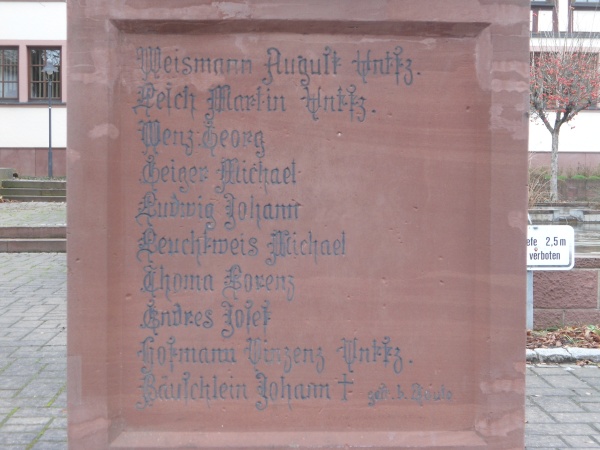 Weismann August Untfz.
Reich Martin Untfz.
Wenz. Georg
Geiger Michael
Ludwig Johann
Leuchtweis Michael
Thoma Lorenz
Endres Josef
Hofmann Vinzenz Untfz.
Bäuschlein Johann † gest. b.
efe 2,5m
verboten